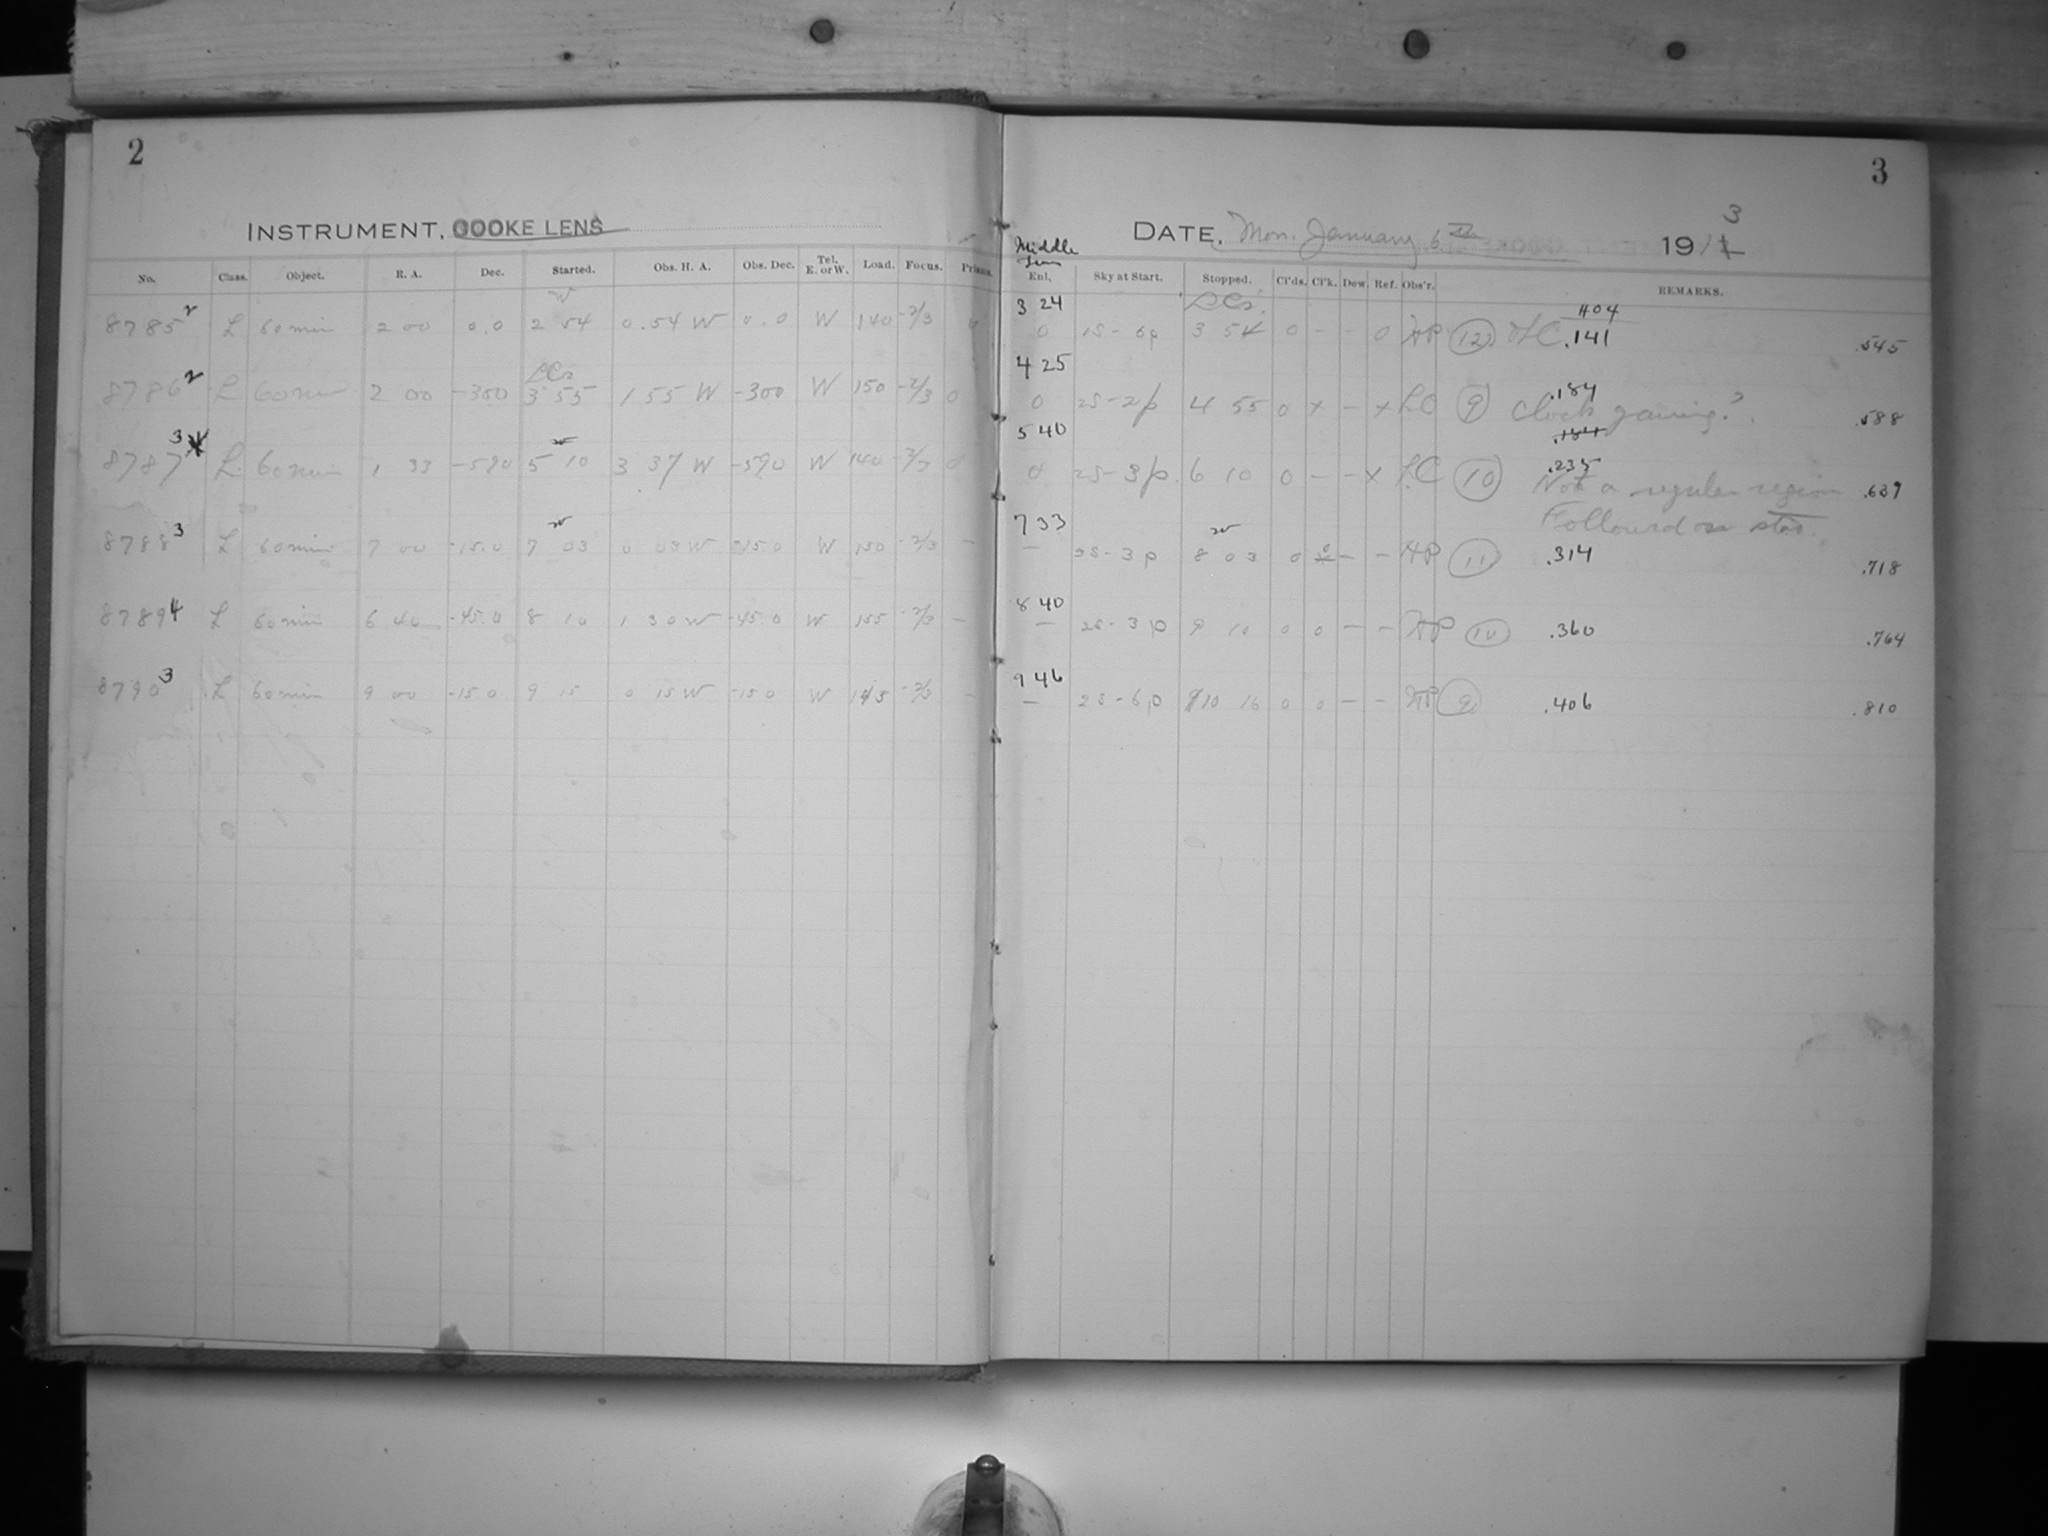 2
INSTRUMENT, COOKE LENS
No. Class. Object. R. A. Dec. Started. Obs. H. A. Obs. Dec. Tel. E. or W. Load. Focus. Prisms.
8785 2 L 60 min 2 00 0.0 2 54 0.54 W 0.0 W 140 -2/3
8786 2 L 60 min 2 00 -300 3 55 1 55 W -300 W 150 -2/3 0
8787 3 L 60 min 1 33 -590 5 10 3 37 W -590 W 140 -2/3 0
8788 3 L 60 min 7 00 -15.0 7 03 0 03 W -15.0 W 150 -2/3 —
8789 4 L 60 min 6 40 -45.0 8 10 1 30 W -45.0 W 155 -2/3 —
8790 3 L 60 min 9 00 -15.0 9 15 0 15 W -15.0 W 145 -2/3 —
3
DATE, Mon. January 6th 1913
Middle
Enl. Sky at Start. Stopped. Cl'ds. Cl'k. Dew. Ref. Obs'r. REMARKS.
3 24 404
0 1S-6p 3 54 0 - - 0 AP 12 LC .141 .545
4 25
0 2S-2p 4 55 0 x - x LC 9 Clock gaining? .184 .588
5 40 .184
0 2S-3p. 6 10 0 - - x LC 10 .235
Not a regular region .639
Followed on star.
7 33
— 2S-3p 8 03 0 0 - - AP 11 .314 .718
8 40
— 2S-3p 9 10 0 0 - - AP 10 .360 .764
9 46
— 2S-6p 10 16 0 0 - - AP 9 .406 .810